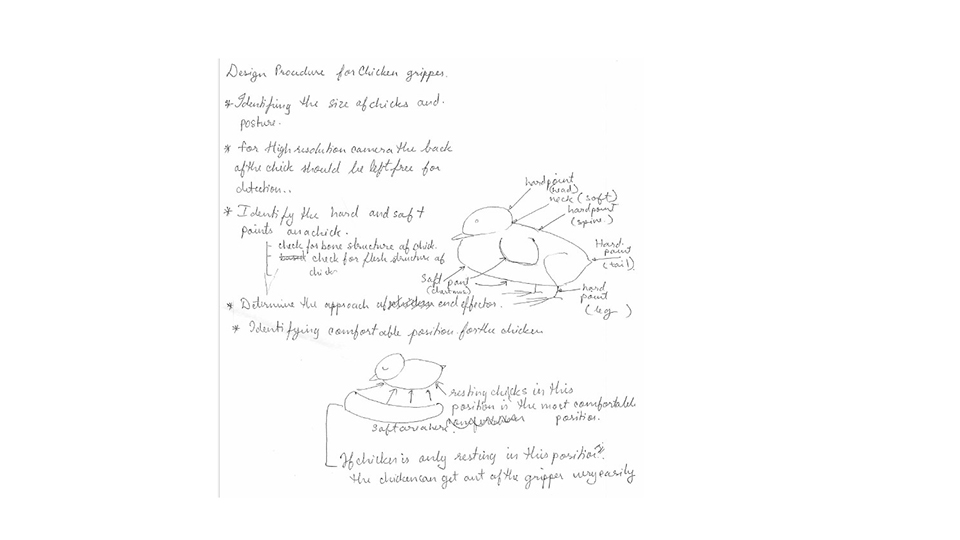 Design Procedure for Chicken gripper.
* Identifing the size of chicks and
posture.
* for High resolution camera the back
of the chick should be left free for
detection..
* Identify the hard and soft
points on a chick.
check for bone structure of chick.
check for flesh structure of
chick
hardpoint
(head)
neck (soft)
hardpoint
(spine)
Hard
point
(tail)
Soft point
hard
point
(leg)
* Determine the approach of end effector.
* Identifying comfortable position for the chicken
resting chicks in this
position is the most comfortable
position.
Soft area here
If chicken is only resting in this position
the chicken can get out of the gripper very easily